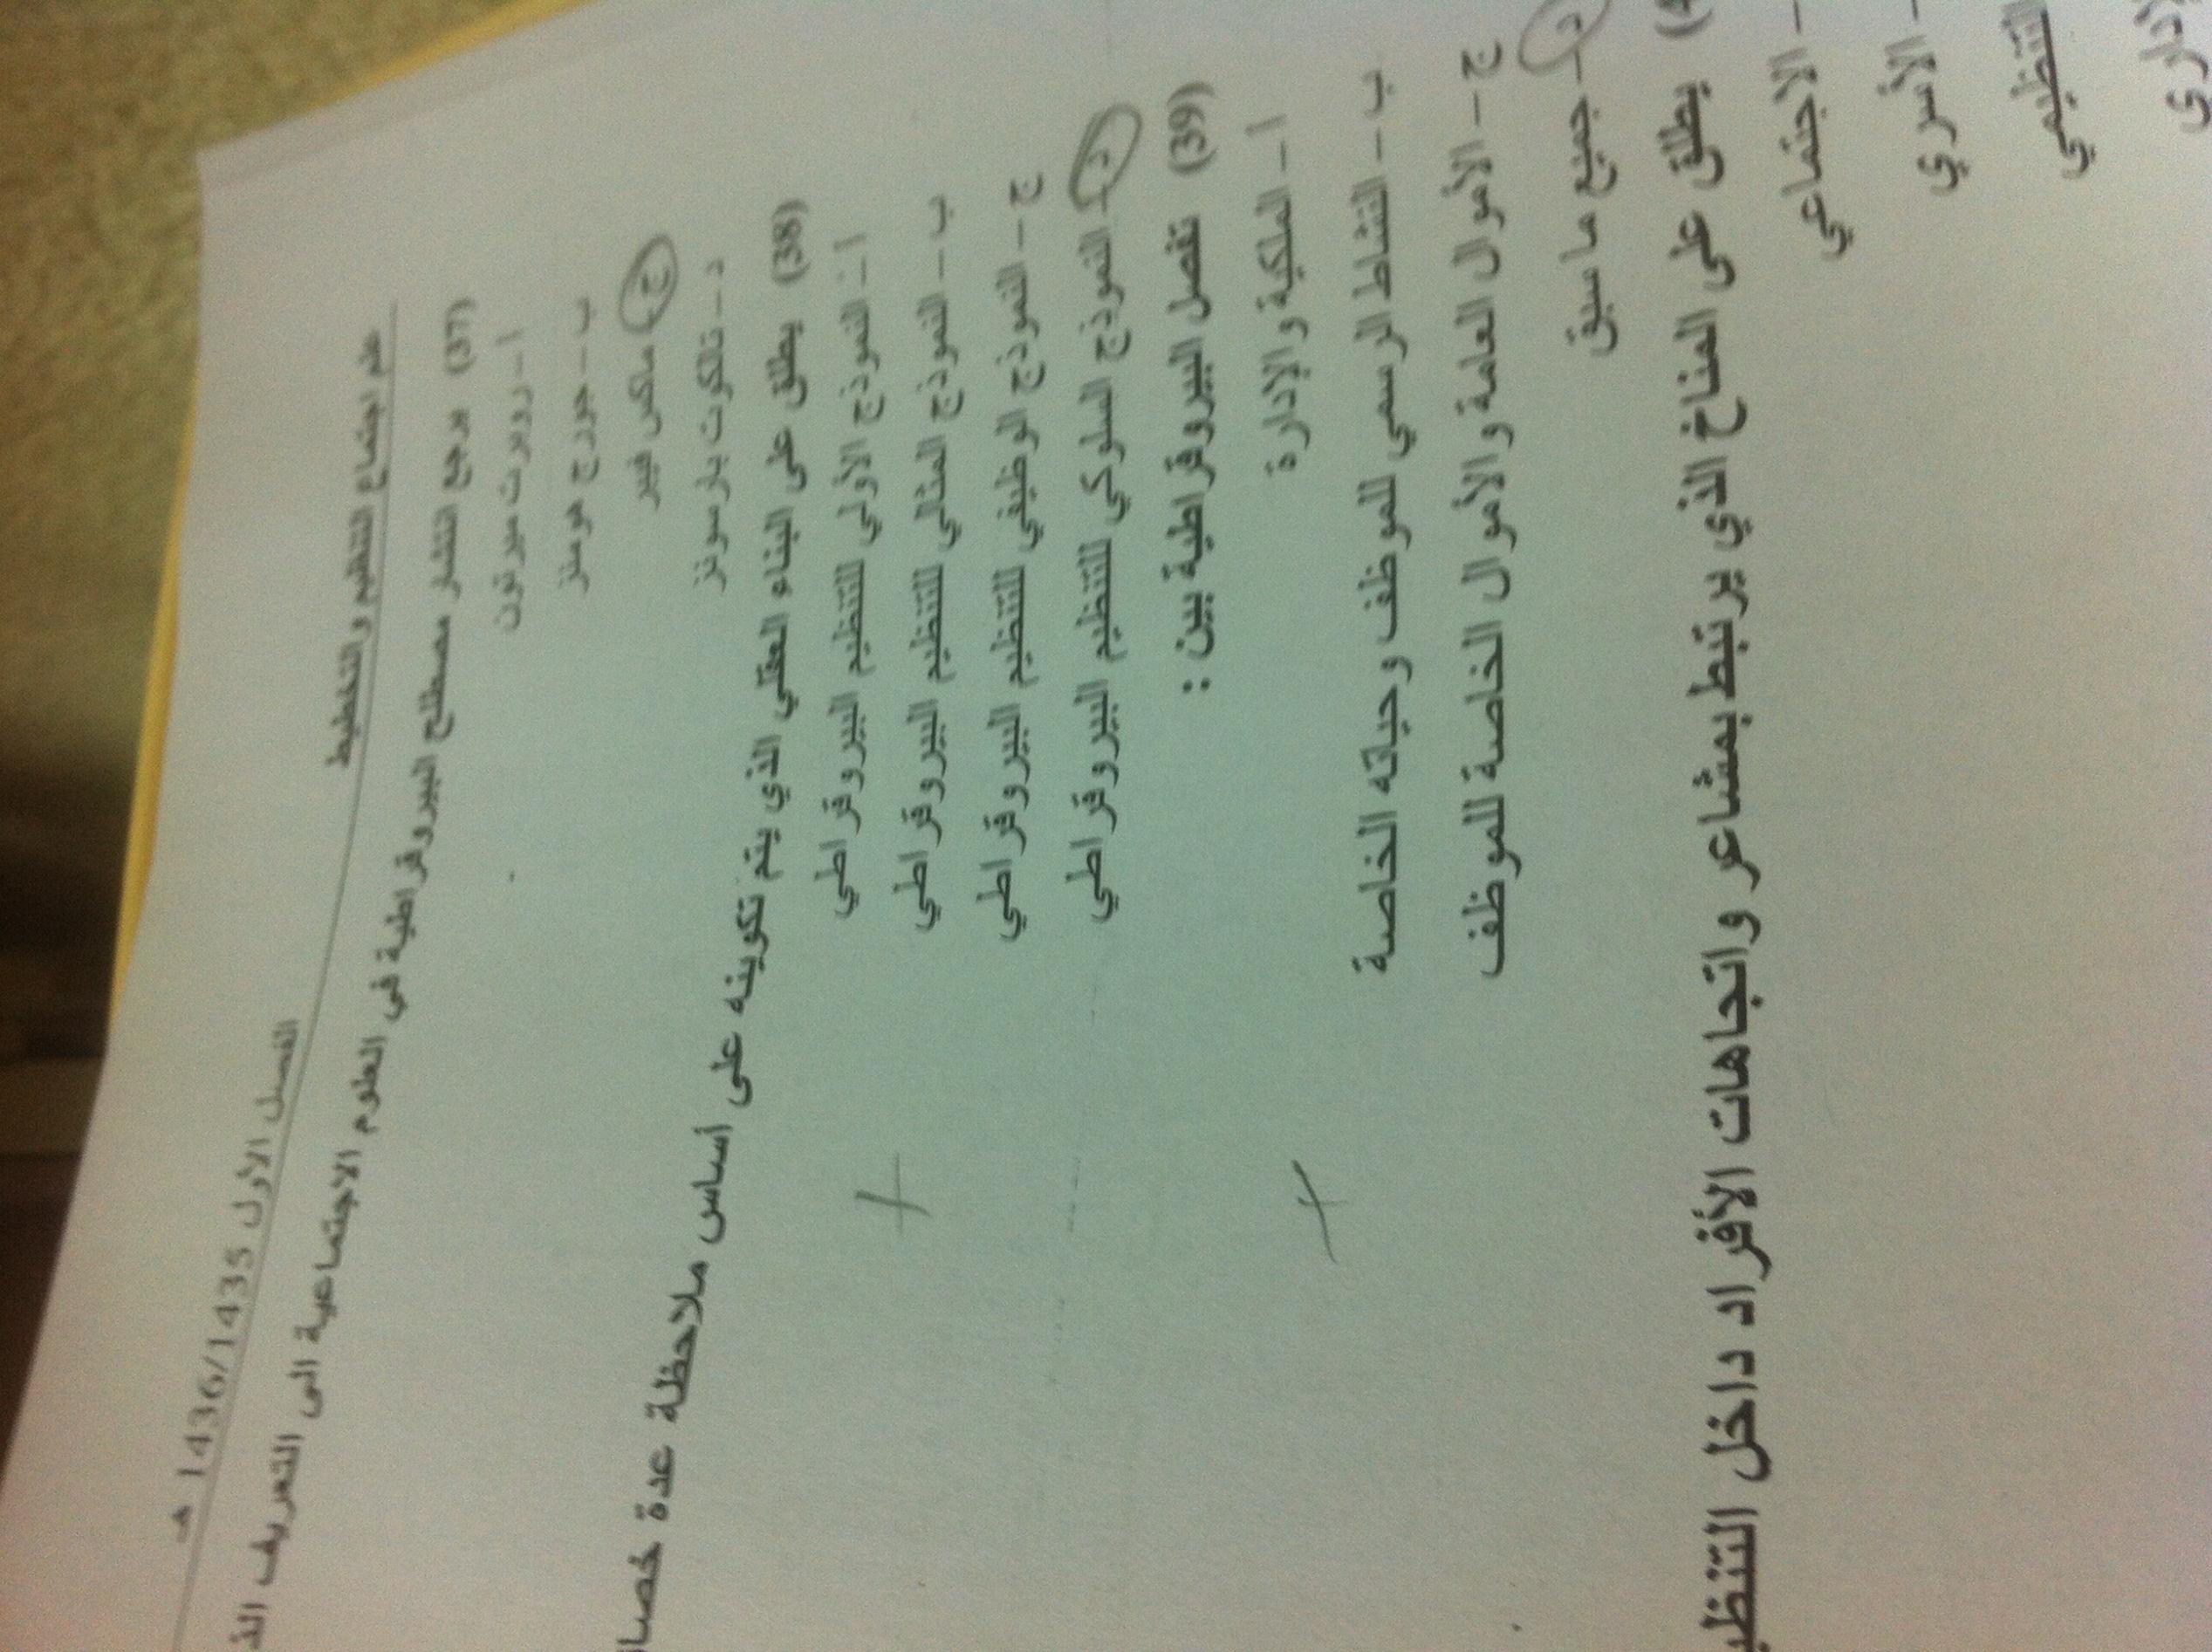 علم اجتماع التنظيم والتخطيط الفصل الأول 1436/1435 هـ
(37) يرجع انتشار مصطلح البيروقراطية في العلوم الاجتماعية الى التعريف
أ - روبرت ميرتون
ب - جورج هومنز
ج - ماكس فيبر
د - تالكوت بارسونز
(38) يطلق على البناء العقلي الذي يتم تكوينه على أساس ملاحظة عدة
أ - النموذج الأولي للتنظيم البيروقراطي
ب - النموذج المثالي للتنظيم البيروقراطي
ج - النموذج الوظيفي للتنظيم البيروقراطي
د - النموذج السلوكي للتنظيم البيروقراطي
(39) تفصل البيروقراطية بين :
أ - الملكية والإدارة
ب - النشاط الرسمي للموظف وحياته الخاصة
ج - الأموال العامة والأموال الخاصة للموظف
د - جميع ما سبق
يطلق على المناخ الذي يرتبط بمشاعر واتجاهات الأفراد داخل
- الاجتماعي
- الأسري
التنظيمي